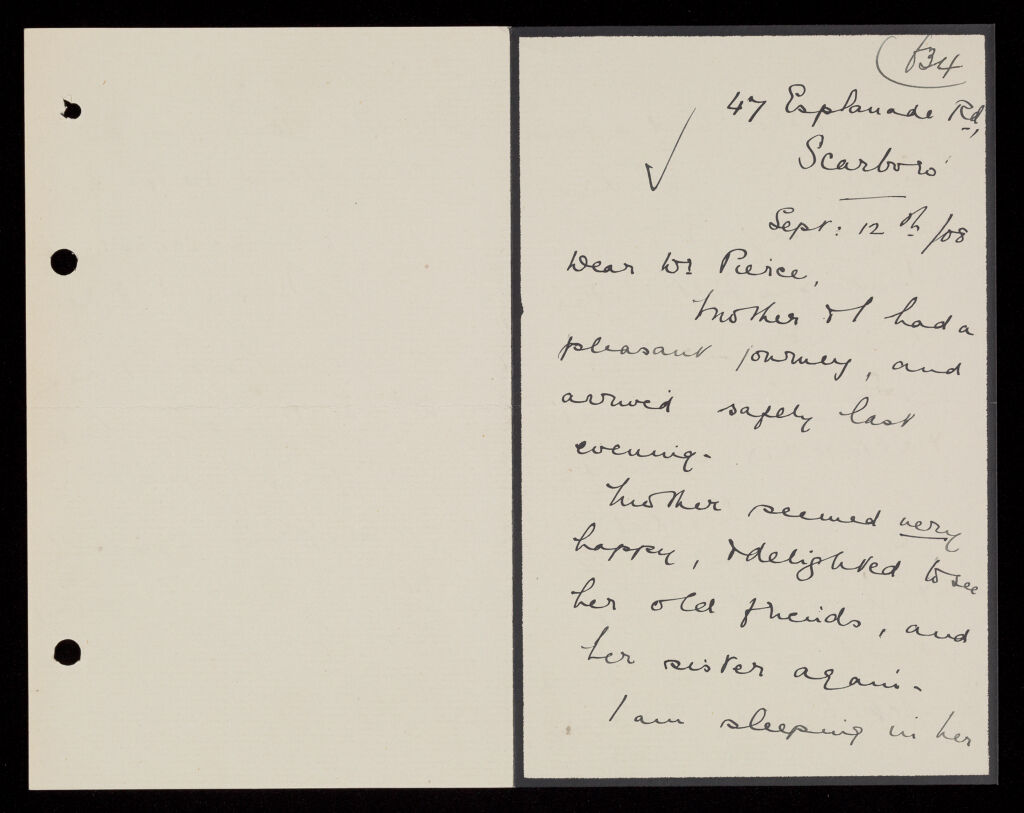 634
47 Esplanade Rd,
Scarboro'
Sept: 12th /08
Dear Dr Pierce,
Mother & I had a
pleasant journey, and
arrived safely last
evening-
Mother seemed very
happy, & delighted to see
her old friends, and
her sister again-
I am sleeping in her